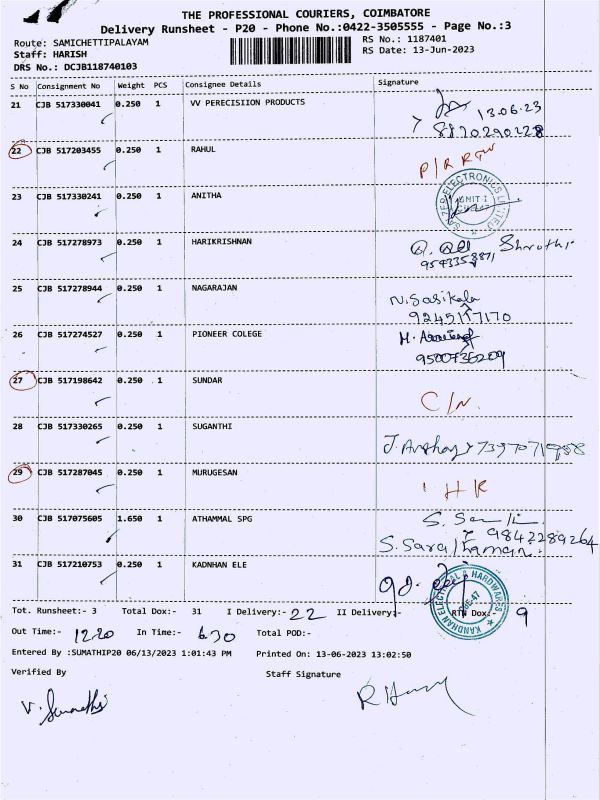 THE PROFESSIONAL COURIERS, COIMBATORE
Delivery Runsheet - P20 - Phone No.:0422-3505555 - Page No.:3
Route: SAMICHETTIPALAYAM RS No.: 1187401
Staff: HARISH RS Date: 13-Jun-2023
DRS No.: DCJB118740103
S No Consignment No Weight PCS Consignee Details Signature
21 CJB 517330041 0.250 1 VV PERECISIION PRODUCTS 13.06.23
22 CJB 517203455 0.250 1 RAHUL P/R
23 CJB 517330241 0.250 1 ANITHA
ELECTRONICS LIMITED UNIT I
24 CJB 517278973 0.250 1 HARIKRISHNAN
25 CJB 517278944 0.250 1 NAGARAJAN N. Sasikala
9245117170
26 CJB 517274527 0.250 1 PIONEER COLEGE
9500736209
27 CJB 517198642 0.250 1 SUNDAR C/N.
28 CJB 517330265 0.250 1 SUGANTHI
29 CJB 517287045 0.250 1 MURUGESAN
30 CJB 517075605 1.650 1 ATHAMMAL SPG
9842289264
31 CJB 517210753 0.250 1 KADNHAN ELE
KANDHAN ELECTRICAL & HARDWARES
Tot. Runsheet:- 3 Total Dox:- 31 I Delivery:- 22 II Delivery:- RTN Dox:- 9
Out Time:- 12.20 In Time:- 6.30 Total POD:-
Entered By :SUMATHIP20 06/13/2023 1:01:43 PM Printed On: 13-06-2023 13:02:50
Verified By Staff Signature